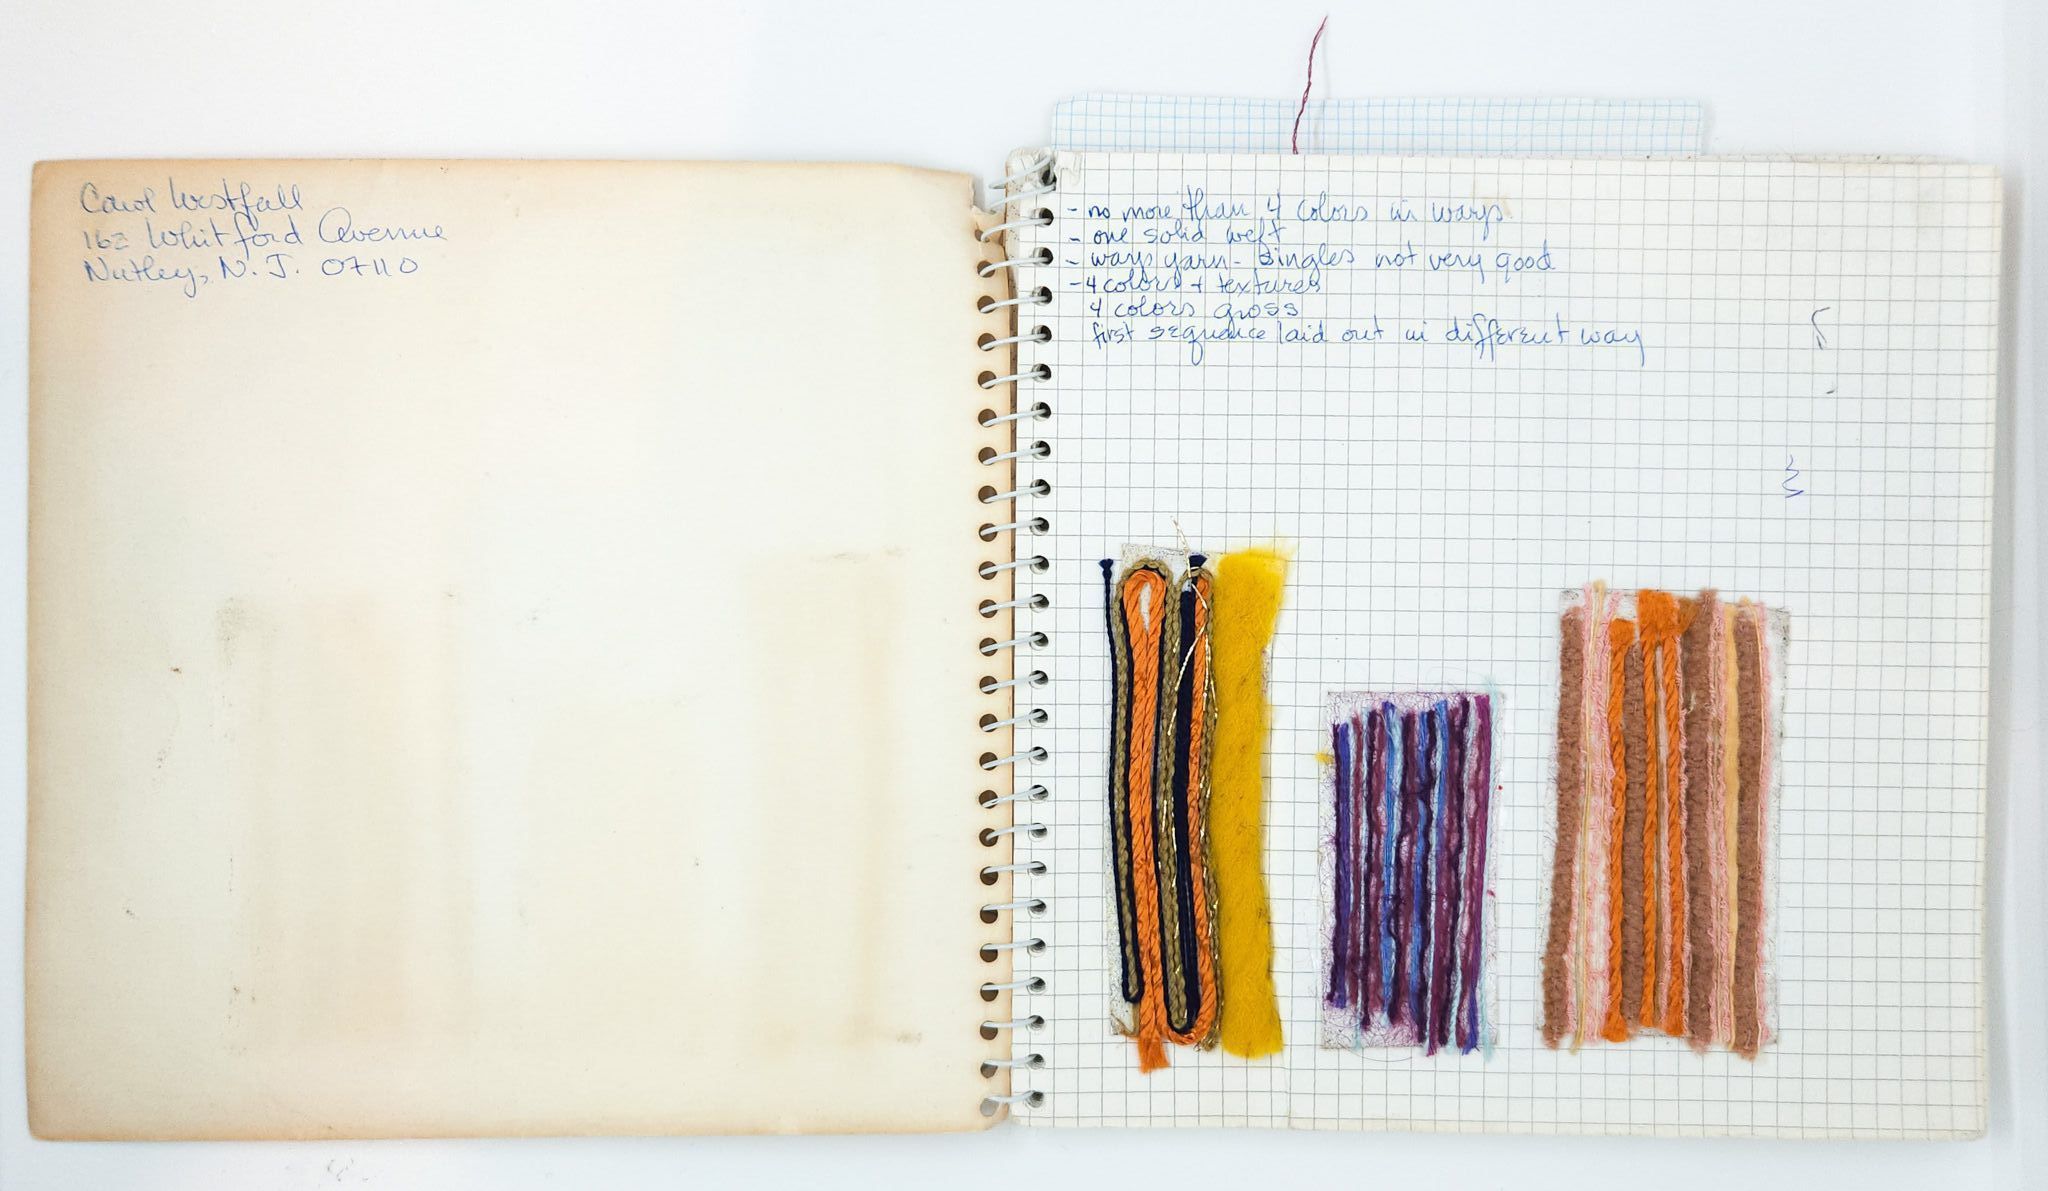 Carol Westfall
162 Whitford Avenue
Nutley, N.J. 07110
- no more than 4 colors in warp.
- one solid weft
- warp yarn - singles not very good
- 4 colors + textures
4 colors gross
first sequence laid out in different way